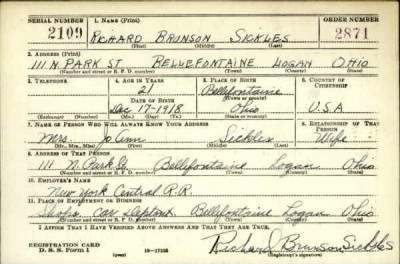 SERIAL NUMBER 1. NAME (Print) ORDER NUMBER
2109 RICHARD BRUNSON SICKLES 2871
(First) (Middle) (Last)
2. ADDRESS (Print)
111 N. PARK ST BELLEFONTAINE LOGAN OHIO
(Number and street or R. F. D. number) (Town) (County) (State)
3. TELEPHONE 4. AGE IN YEARS 5. PLACE OF BIRTH 6. COUNTRY OF CITIZENSHIP
21 Bellefontaine
DATE OF BIRTH (Town or county)
Dec 17-1918 Ohio U.S.A
(Exchange) (Number) (Mo.) (Day) (Yr.) (State or country)
7. NAME OF PERSON WHO WILL ALWAYS KNOW YOUR ADDRESS 8. RELATIONSHIP OF THAT PERSON
Mrs. Jo Ann Sickles Wife
(Mr., Mrs., Miss) (First) (Middle) (Last)
9. ADDRESS OF THAT PERSON
111 N. Park St Bellefontaine Logan Ohio
(Number and street or R. F. D. number) (Town) (County) (State)
10. EMPLOYER'S NAME
New York Central R.R.
11. PLACE OF EMPLOYMENT OR BUSINESS
Car Bellefontaine Logan Ohio
(Number and street or R. F. D. number) (Town) (County) (State)
I AFFIRM THAT I HAVE VERIFIED ABOVE ANSWERS AND THAT THEY ARE TRUE.
REGISTRATION CARD
D. S. S. Form 1 Richard Brunson Sickles
(Registrant's signature)